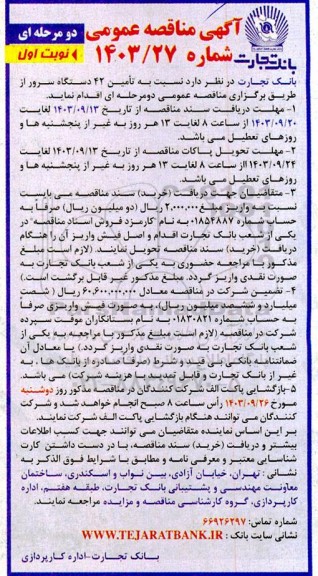 آگهی مناقصه عمومی
دو مرحله ای
شماره ۱۴۰۳/۲۷
نوبت اول
بانک تجارت
بانک تجارت در نظر دارد نسبت به تأمین ۴۲ دستگاه سرور از
طریق برگزاری مناقصه عمومی دومرحله ای اقدام نماید.
۱- مهلت دریافت سند مناقصه از تاریخ ۱۴۰۳/۰۹/۱۳ لغایت
۱۴۰۳/۰۹/۲۰ از ساعت ۸ لغایت ۱۳ هر روز به غیر از پنجشنبه ها و
روزهای تعطیل می باشد.
۲- مهلت تحویل پاکات مناقصه از تاریخ ۱۴۰۳/۰۹/۱۳ لغایت
۱۴۰۳/۰۹/۲۴ از ساعت ۸ لغایت ۱۳ هر روز به غیر از پنجشنبه ها و
روزهای تعطیل می باشد.
۳- متقاضیان جهت دریافت (خرید) سند مناقصه می بایست
نسبت به واریز مبلغ ۲٫۰۰۰٫۰۰۰ ریال (دو میلیون ریال) صرفاً به
حساب شماره ۰۱۸۵۴۸۸۷ به نام "کارمزد فروش اسناد مناقصه" در
یکی از شعب بانک تجارت اقدام و اصل فیش واریز آن را هنگام
دریافت (خرید) سند مناقصه تحویل نمایند. (لازم است مبلغ
مذکور با مراجعه حضوری به یکی از شعب بانک تجارت به
صورت نقدی واریز گردد. مبلغ مذکور غیر قابل برگشت است.)
۴- تضمین شرکت در مناقصه معادل ۶۰٫۶۰۰٫۰۰۰٫۰۰۰ ریال (شصت
میلیارد و ششصد میلیون ریال)، به صورت فیش واریزی صرفاً
به حساب شماره ۰۱۸۳۰۸۲۱ به نام "بستانکاران موقت - سپرده
شرکت در مناقصه" (لازم است مبلغ مذکور با مراجعه به یکی از
شعب بانک تجارت به صورت نقدی واریز گردد) یا معادل آن
ضمانتنامه بانکی بی قید و شرط (صرفاً صادره از بانک ها به
غیر از بانک تجارت و قابل تمدید با هزینه شرکت) می باشد.
۵-بازگشایی پاکت الف شرکت کنندگان در مناقصه مذکور روز دوشنبه
مورخ ۱۴۰۳/۰۹/۲۶ رأس ساعت ۸ صبح انجام خواهد شد و شرکت
کنندگان می توانند هنگام بازگشایی پاکت الف شرکت نمایند.
بر این اساس نماینده متقاضیان می توانند جهت کسب اطلاعات
بیشتر و دریافت (خرید) سند مناقصه، با در دست داشتن کارت
شناسایی معتبر و معرفی نامه و مطابق با شرایط فوق الذکر به
نشانی: تهران، خیابان آزادی، بین نواب و اسکندری، ساختمان
معاونت مهندسی و پشتیبانی بانک تجارت، طبقه هفتم، اداره
کارپردازی، گروه کارشناسی مناقصه و مزایده مراجعه نمایند.
شماره تماس: ۶۶۹۲۶۲۹۷
نشانی سایت بانک : WWW.TEJARATBANK.IR
بانک تجارت-اداره کارپردازی